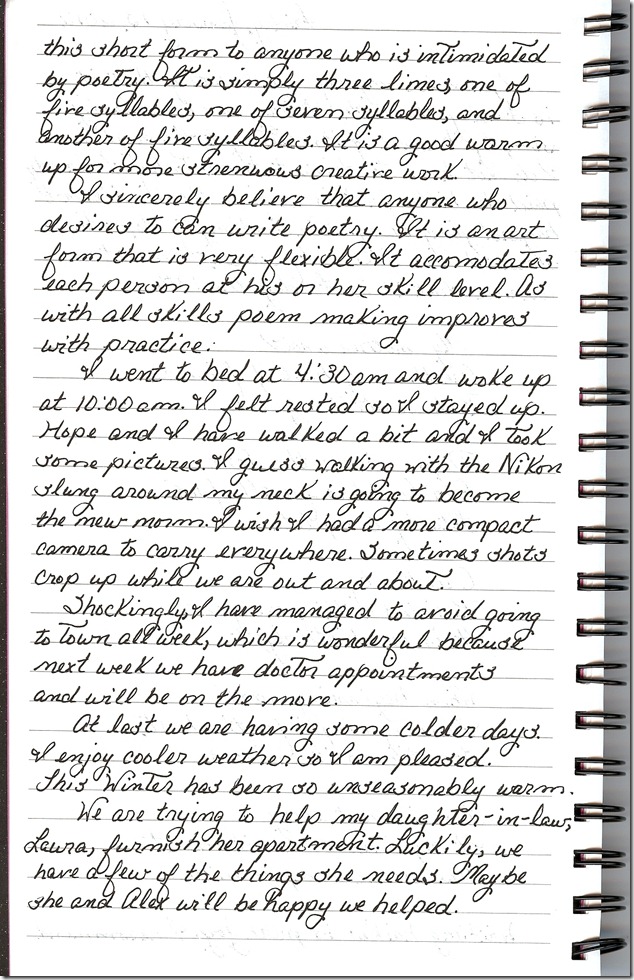 this short form to anyone who is intimidated
by poetry. It is simply three lines, one of
five syllables, one of seven syllables, and
another of five syllables. It is a good warm
up for more strenuous creative work.
I sincerely believe that anyone who
desires to can write poetry. It is an art
form that is very flexible. It accomodates
each person at his or her skill level. As
with all skills poem making improves
with practice.
I went to bed at 4:30 am and woke up
at 10:00 am. I felt rested so I stayed up.
Hope and I have walked a bit and I took
some pictures. I guess walking with the Nikon
slung around my neck is going to become
the new norm. I wish I had a more compact
camera to carry everywhere. Sometimes shots
crop up while we are out and about.
Shockingly, I have managed to avoid going
to town all week, which is wonderful because
next week we have doctor appointments
and will be on the move.
At last we are having some colder days.
I enjoy cooler weather so I am pleased.
This Winter has been so unseasonably warm.
We are trying to help my daughter-in-law,
Laura, furnish her apartment. Luckily, we
have a few of the things she needs. Maybe
she and Alex will be happy we helped.